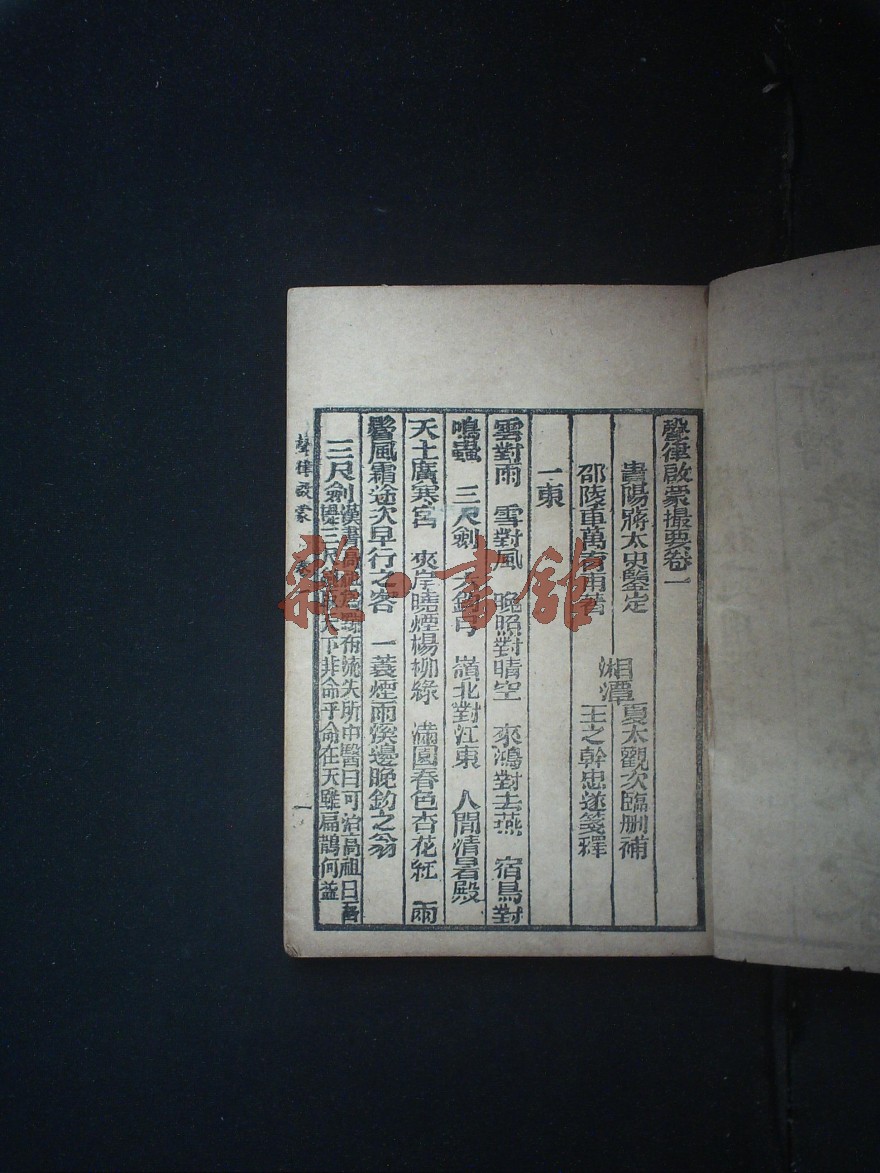 聲律啟蒙撮要卷一
貴陽蔣太史鑒定
邵陵車萬育雨著
湘潭
夏大觀次臨刪補
王之幹忠遂箋釋
一東
雲對雨 雪對風 晚照對晴空 來鴻對去燕 宿鳥對
鳴蟲 三尺劍 六鈞弓 嶺北對江東 人間清暑殿
天上廣寒宮 夾岸曉煙楊柳綠 滿園春色杏花紅 兩
鬢風霜途次早行之客 一蓑煙雨溪邊晚釣之翁
三尺劍
漢書高祖
布流矢所中醫曰可治高祖曰吾
提三尺
天下非命乎命在天雖扁鵲何益
聲律啟蒙
卷一
一
雜·書館